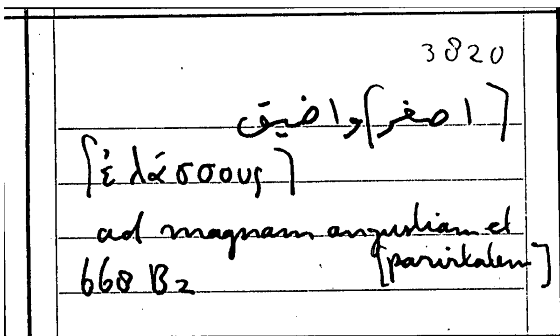 3820
[اصغر] واضيق
[ἐλάσσους]
ad magnam angustiam et
668 B2 [parvitatem]